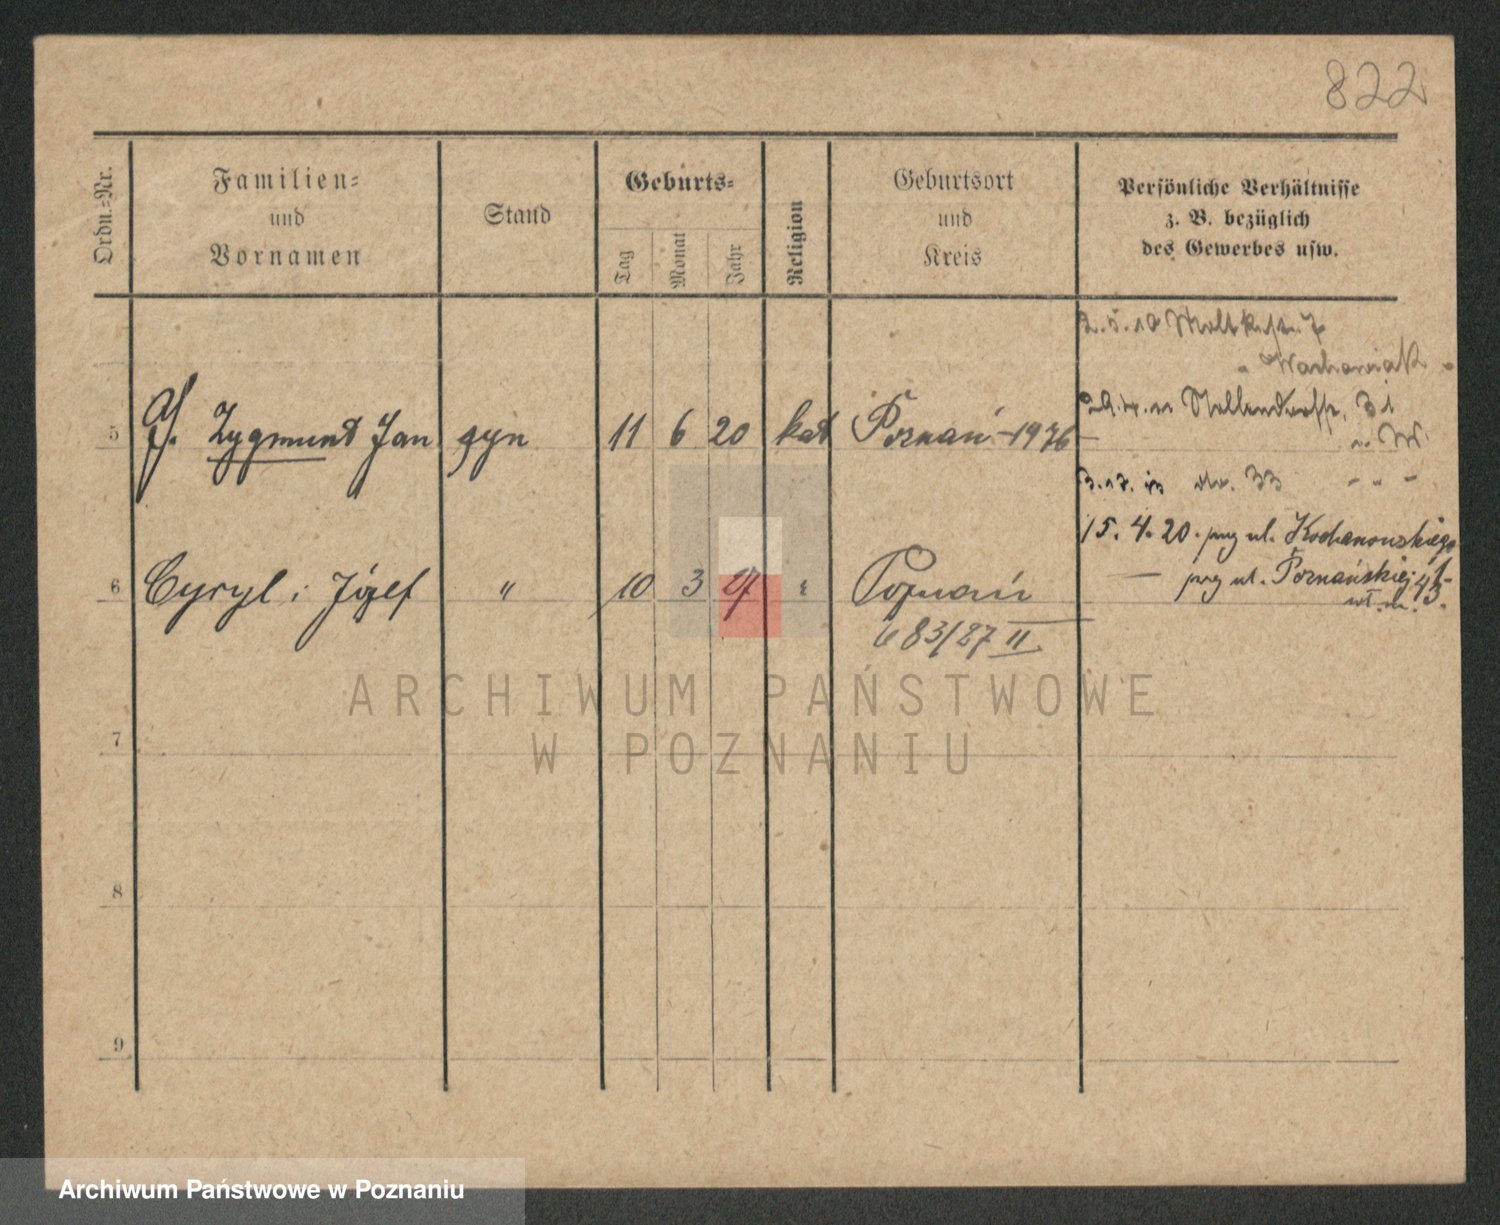 822
Ordn.-Nr.
Familien-
und
Vornamen
Stand
Geburts-
Tag
Monat
Jahr
Religion
Geburtsort
und
Kreis
Persönliche Verhältnisse
z. B. bezüglich
des Gewerbes usw.
5 Zygmunt Jan syn 11 6 20 kat Poznań - 1976
33
15. 4. 20. prg ul. Kochanowskiego
6 Cyryl i Józef " 10 3 Poznań
— prg ul. Poznańskiej
683/27 II
7
8
9
ARCHIWUM PAŃSTWOWE
W POZNANIU
Archiwum Państwowe w Poznaniu